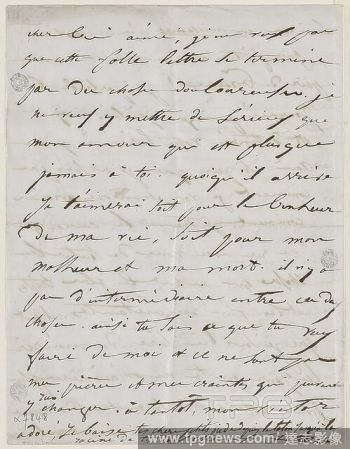 cher bien aimé, je ne veux pas
que cette folle lettre se termine
par des choses douloureuses, je
ne veux y mettre de sérieux que
mon amour qui est plus que
jamais à toi. quoiqu'il arrive
je t'aimerai soit pour le bonheur
de ma vie, soit pour mon
malheur et ma mort. il n'y a
pas d'intermédiaire entre ces deux
choses. ainsi tu sais ce que tu veux
faire de moi et ce ne sont pas
mes prières et mes craintes qui peuvent
y rien changer. à tantôt, mon Victor
adoré. je baise tes chers petits pieds
racine de
α 7848
TPG
www.tpgnews.com 達志影像